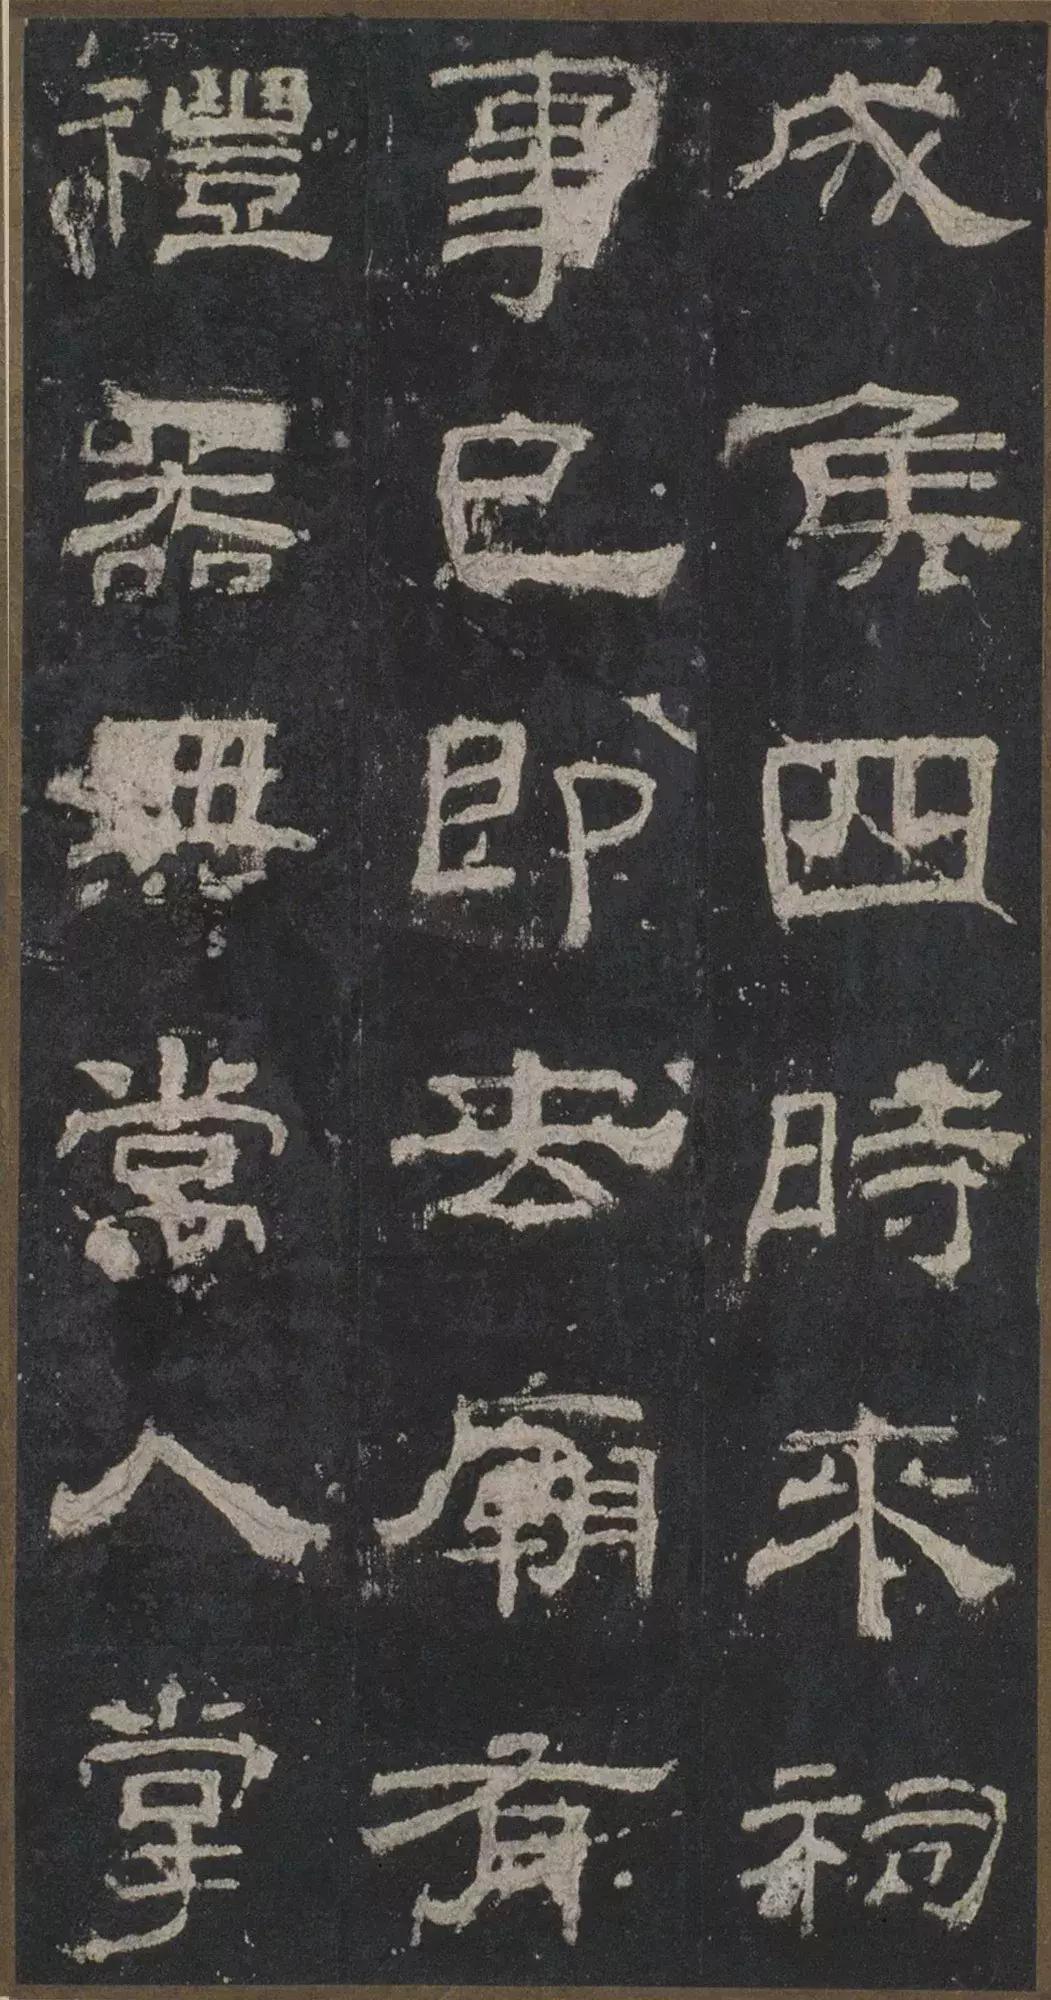 成矦四時来祠
事已即去廟有
禮器無常人掌